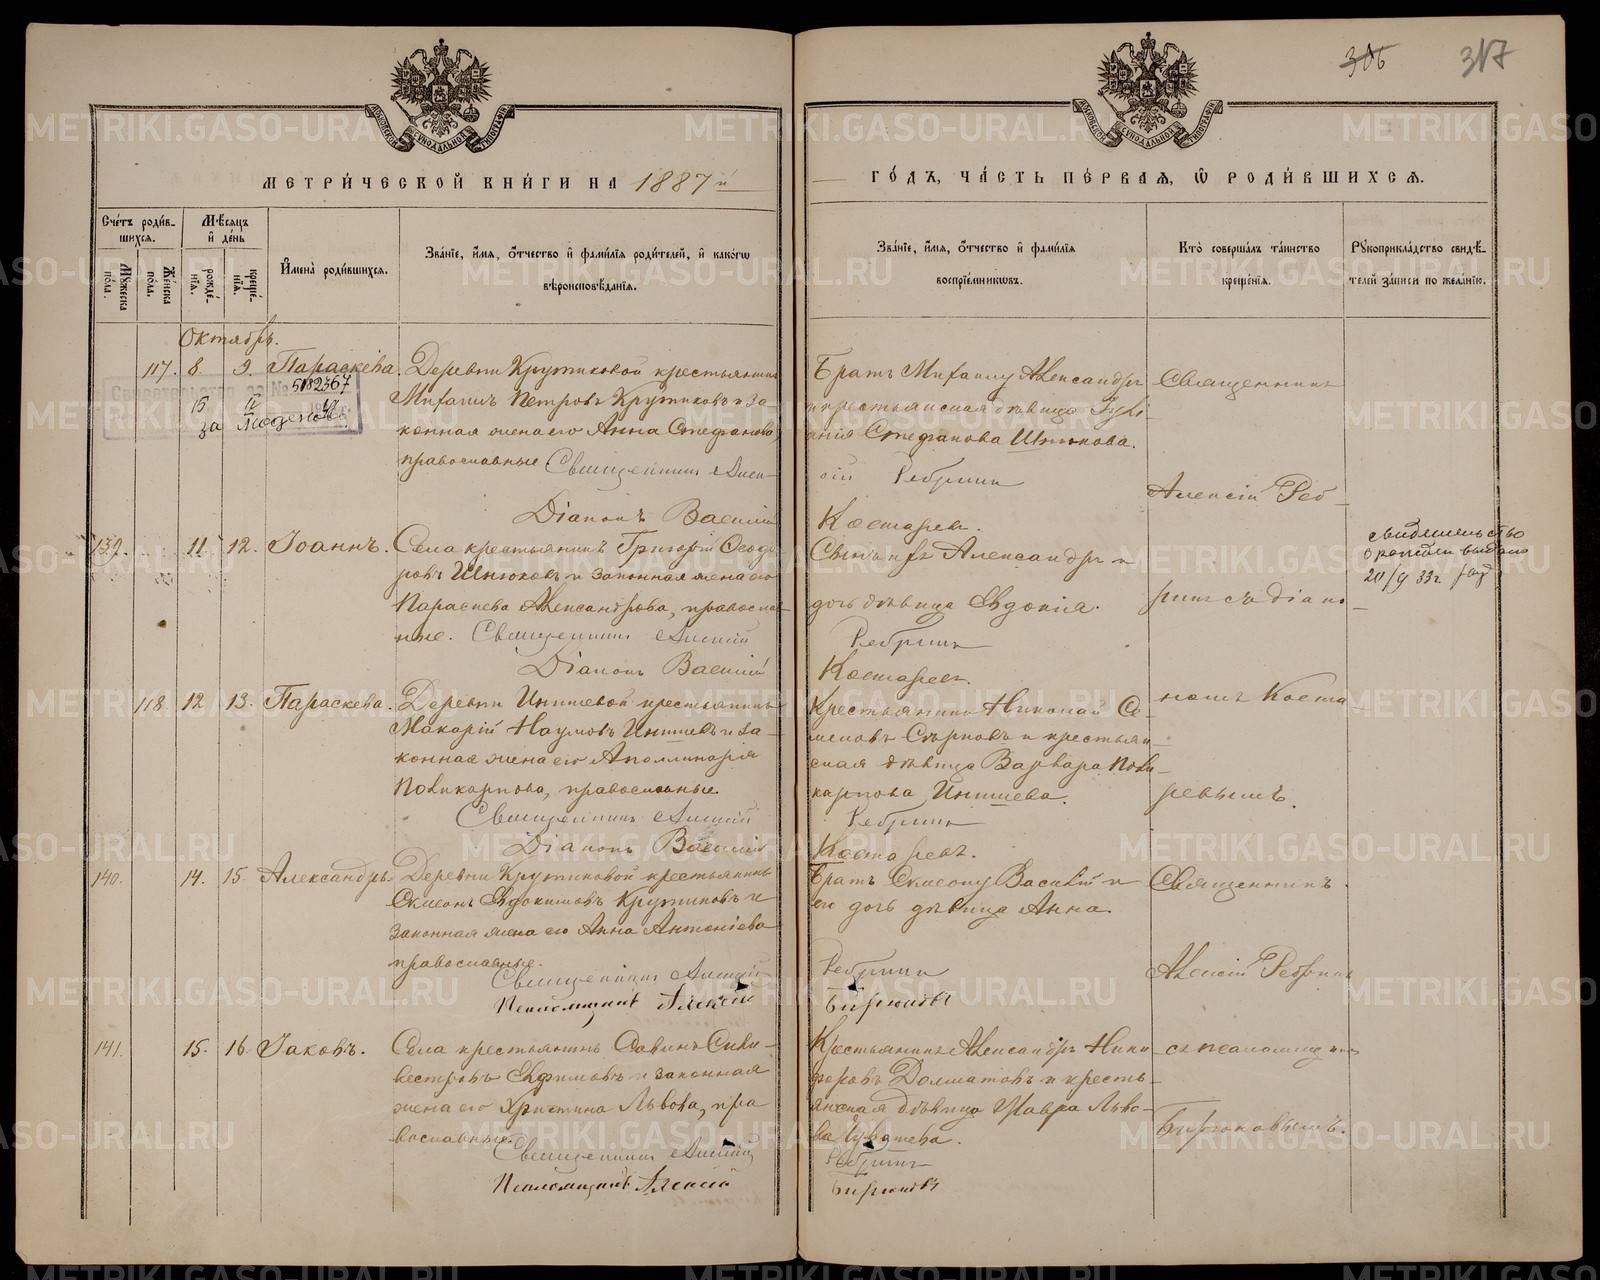 306 317
МЕТРИ́ЧЕСКОЙ КНИ́ГИ НА 1887 й
ГО́ДЪ, ЧА́СТЬ ПЕ́РВАЯ, Ѡ҆ РОДИ́ВШИХСѦ.
Сче́тъ роди́в-
шихсѧ.
Мꙋжеска по́ла.
Же́нска по́ла.
Мѣ́сѧцъ
и҆ де́нь
рожде́-
нїѧ.
креще́-
нїѧ.
И҆мена̀ роди́вшихсѧ.
Зва́нїе, и҆́мѧ, ѻ҆́тчество и҆ фами́лїѧ роди́телей, и҆ како́гѡ
вѣроисповѣ́данїѧ.
Зва́нїе, и҆́мѧ, ѻ҆́тчество и҆ фами́лїѧ
воспрїе́мникѡвъ.
Кто̀ соверша́лъ та́инство
креще́нїѧ.
Рꙋкоприкла́дство свидѣ́-
телей за́писи по жела́нїю.
Октябрь.
117. 8. 9. Параскева.
5182367
Деревни Крутиковой крестьянин
Михаилъ Петровъ Крутиковъ и за-
конная жена его Анна Стефанова,
православные Священникъ Алек-
Діаконъ Василій
Братъ Михаилу Александръ
и крестьянская дѣвица Іулі-
анія Стефанова
сій Ребринъ
Костаревъ.
Священникъ
Алексій Реб-
139. 11. 12. Іоаннъ.
Села крестьянинъ Григорій Ѳеодо-
ровъ и законная жена его
Параскева Александрова, православ-
ные. Священникъ Алексій
Діаконъ Василій
Сынъ ихъ Александръ и
дочь дѣвица Евдокія.
Ребринъ
Костаревъ.
ринъ съ діако-
свидетельство
о рождении выдано
118. 12 13. Параскева.
Деревни крестьянинъ
Макарій Наумовъ и за-
конная жена его Аполлинарія
Поликарпова, православные.
Священникъ Алексій
Діаконъ Василій
Крестьянинъ Николай Се-
меновъ и крестьян-
ская дѣвица Варвара Поли-
карпова
Ребринъ
Костаревъ.
номъ Коста-
ревымъ.
140. 14. 15. Александръ.
Деревни Крутиковой крестьянинъ
Симеонъ Евдокимовъ Крутиковъ и
законная жена его Анна Антоніева
православные.
Священникъ Алексій
Псаломщикъ Алексій
Братъ Симеону Василій и
его дочь дѣвица Анна.
Ребринъ
Бирюковъ
Священникъ
Алексій Ребринъ
141. 15. 16. Іаковъ.
Села крестьянинъ Савинъ Силь-
вестровъ Ефимовъ и законная
жена его Христина Львова, пра-
вославные.
Священникъ Алексій
Псаломщикъ Алексій
Крестьянинъ Александръ Ники-
форовъ Долматовъ и кресть-
янская дѣвица Мавра Льво-
ва
Ребринъ
Бирюковъ
съ псаломщикомъ
Бирюковымъ.
METRIKI.GASO-URAL.RU